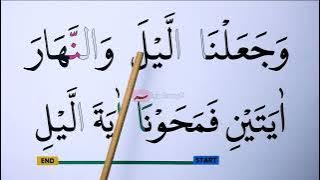 وَجَعَلْنَا الَّيْلَ وَالنَّهَارَ
اٰيَتَيْنِ فَمَحَوْنَا اٰيَةَ الَّيْلِ
END START